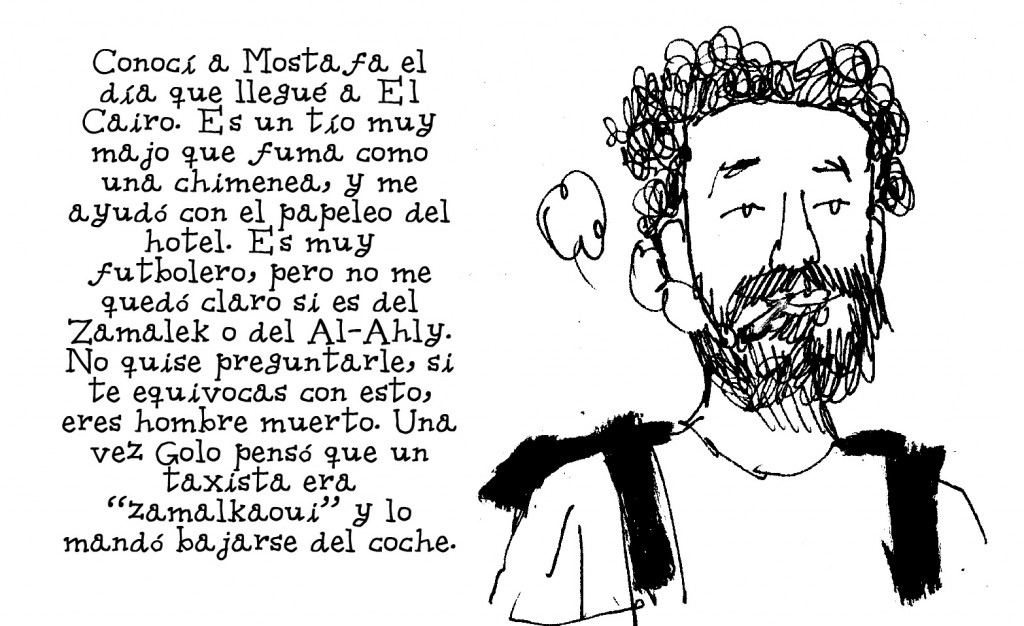 Conocí a Mostafa el
día que llegué a El
Cairo. Es un tío muy
majo que fuma como
una chimenea, y me
ayudó con el papeleo del
hotel. Es muy
futbolero, pero no me
quedó claro si es del
Zamalek o del Al-Ahly.
No quise preguntarle, si
te equivocas con esto,
eres hombre muerto. Una
vez Golo pensó que un
taxista era
“zamalkaoui” y lo
mandó bajarse del coche.